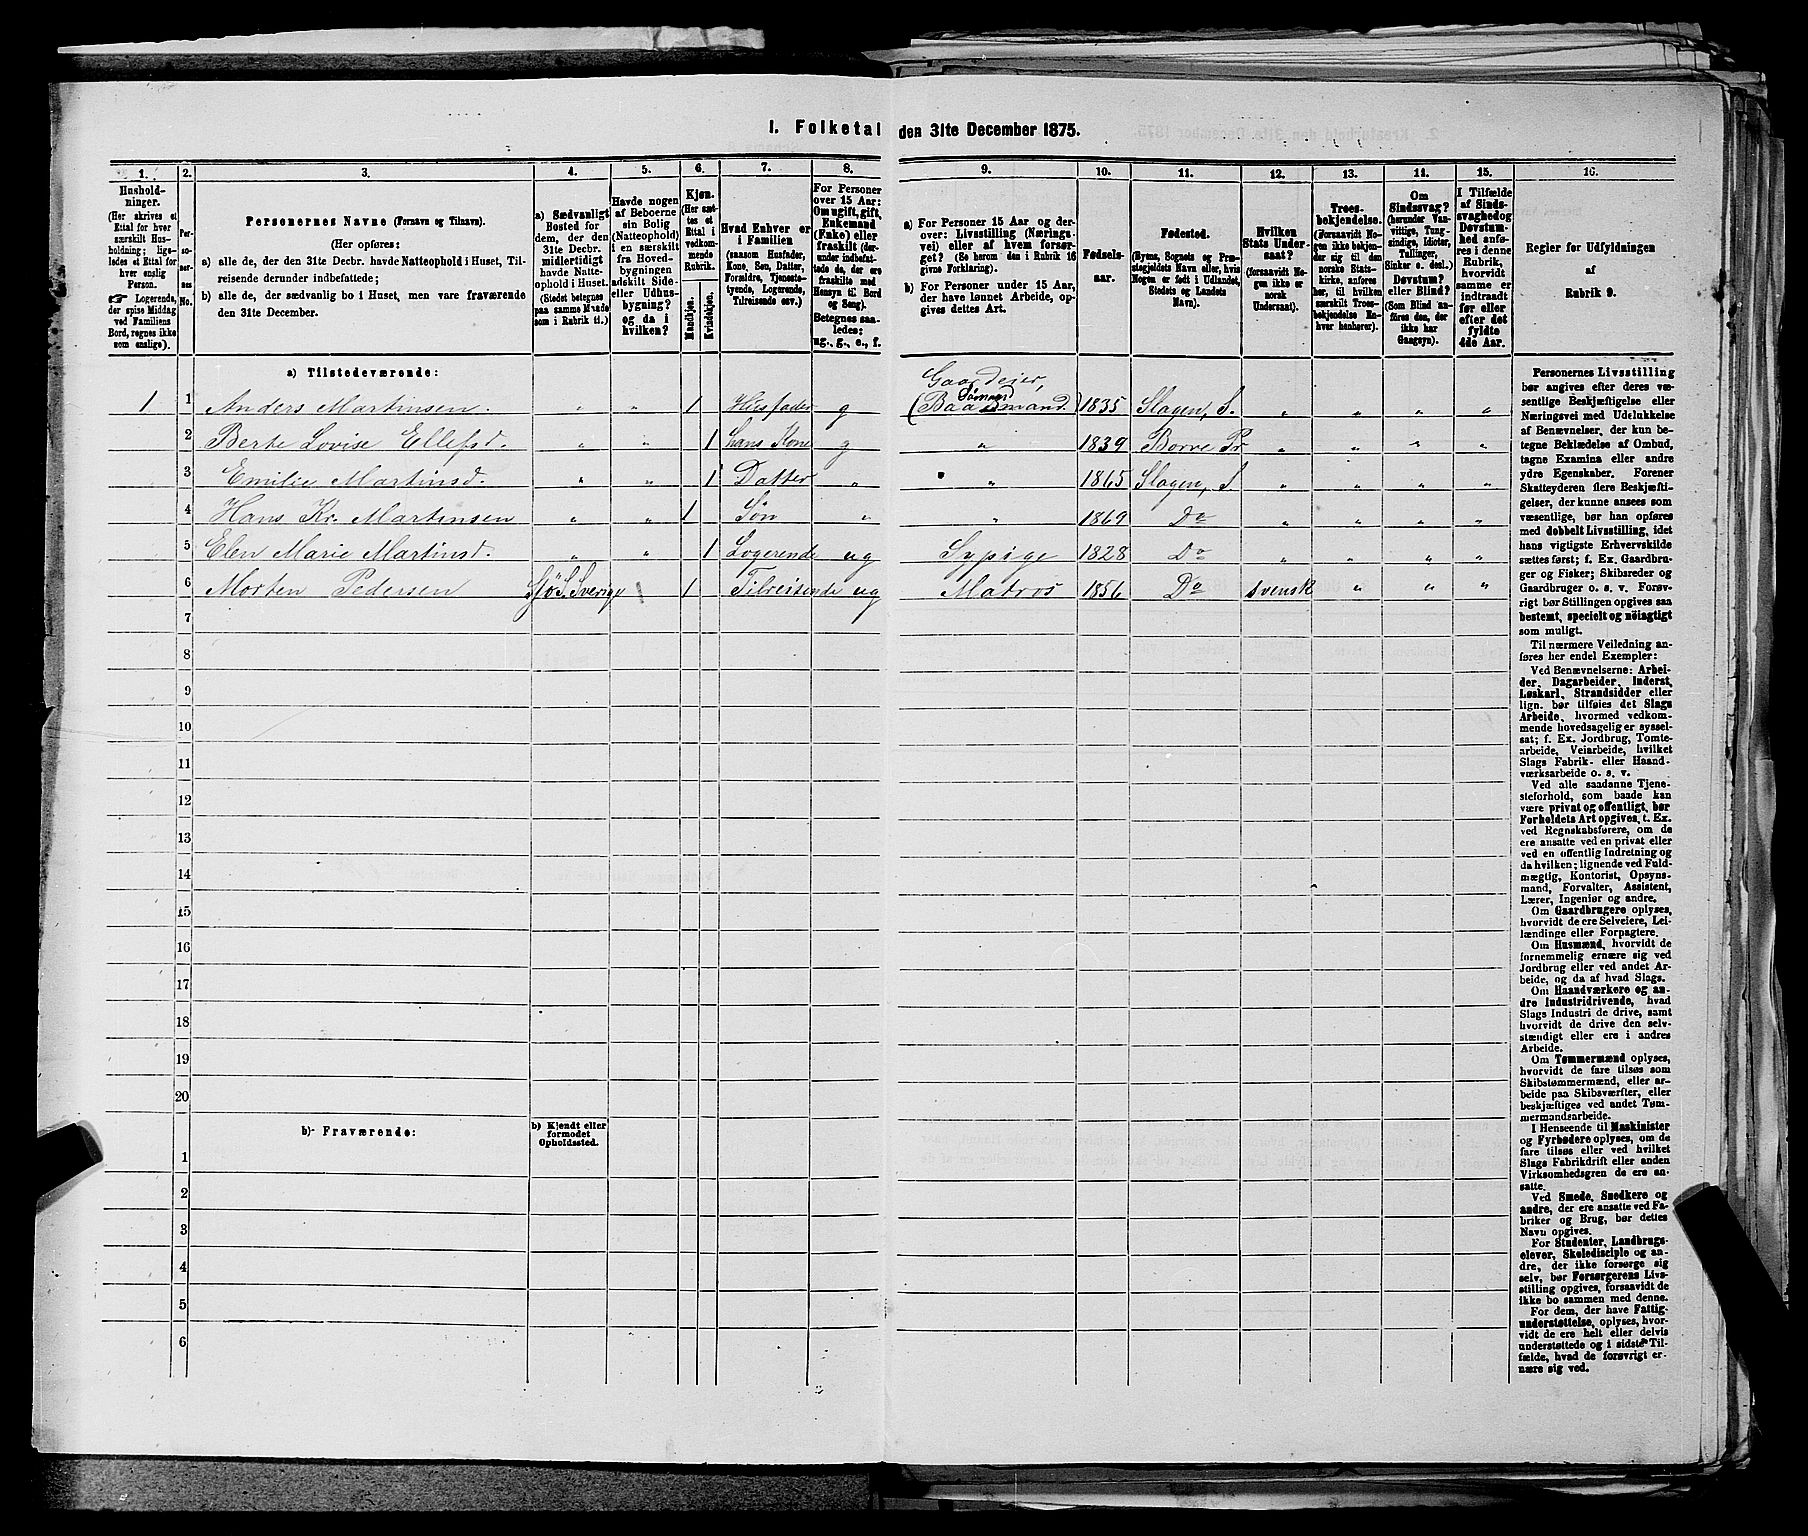 1. Folketal den 31te December 1875.
1. 2. 3. 4. 5. 6. 7. 8. 9. 10. 11. 12. 13. 14. 15. 16.
Hushold-
ninger.
(Her skrives et
Ettal for hver
særskilt Hus-
holdning; lige-
ledes et Ettal for
hver enslig
Person.
Logerende,
der spise Middag
ved Familiens
Bord, regnes ikke
som enslige).
Per-
so-
ner-
nes
No.
Personernes Navne (Fornavn og Tilnavn).
(Her opføres:
a) alle de, der den 31te Decbr. havde Natteophold i Huset, Til-
reisende derunder indbefattede;
b) alle de, der sædvanlig bo i Huset, men vare fraværende
den 31te December.
a) Sædvanligt
Bosted for
dem, der den
31te Decbr.
midlertidigt
havde Natte-
ophold i Huset.
(Stedet betegnes
paa samme Maade
som i Rubrik 11.)
Havde nogen
af Beboerne
sin Bolig
(Natteophold)
i en særskilt
fra Hoved-
bygningen
adskilt Side-
eller Udhus-
bygning?
og da i
hvilken?
Kjøn.
(Her sæt-
tes et
Ettal i
vedkom-
mende
Rubrik.
Mandkjøn.
Kvindekjøn.
Hvad Enhver er
i Familien
(saasom Husfader,
Kone, Søn, Datter,
Forældre, Tjeneste-
tyende, Logerende,
Tilreisende osv.)
For Personer
over 15 Aar:
Om ugift, gift,
Enkemand
(Enke) eller
fraskilt (der-
under indbefat-
tede de, der ere
fraskilte med
Hensyn til Bord
og Seng).
Betegnes saa-
ledes:
ug., g., e., f.
a) For Personer 15 Aar og der-
over: Livsstilling (Nærings-
vei) eller af hvem forsør-
get? (Se herom den i Rubrik 16
givne Forklaring).
b) For Personer under 15 Aar,
der have lønnet Arbeide, op-
gives dettes Art.
Fødsels-
aar.
Fødested.
(Byens, Sognets og Præ-
stegjeldets Navn eller, hvis
Nogen er født i Udlandet,
Stedets og Landets
Navn).
Hvilken
Stats Under-
saat?
(forsaavidt No-
gen ikke er
norsk
Undersaat).
Troes-
bekjendelse.
(Forsaavidt No-
gen ikke bekjen-
der sig til den
norske Stats-
kirke, anføres
her, til hvilken
særskilt Troes-
bekjendelse En-
hver henhører).
Om
Sindssvag?
(herunder Van-
vittige, Tung-
sindige, Idioter,
Tullinger,
Sinker o. desl.)
Døvstum?
eller Blind?
(Som Blind an-
føres den, der
ikke har
Gangsyn).
I Tilfælde
af Sinds-
svaghed og
Døvstum-
hed anfø-
res i denne
Rubrik,
hvorvidt
samme er
indtraadt
før eller
efter det
fyldte
4de Aar.
Regler for Udfyldningen
af
Rubrik 9.
a) Tilstedeværende:
Gaardeier,
1 1 Anders Martinsen. " " 1 Husfader g (Baadsmand.) Sømand 1835 Slagen, S. " " " "
2 Berte Lovise Ellefsd. " " 1 hans Kone g " 1839 Borre Pr " " " "
3 Emilie Martinsd. " " 1 Datter " " 1865 Slagen, S. " " " "
4 Hans Kr. Martinsen " " 1 Søn " " 1869 Do " " " "
5 Elen Marie Martinsd. " " 1 Logerende ug Sypige 1828 Do " " " "
6 Morten Pedersen Sverige 1 Tilreisende ug Matros 1856 Do svensk " " "
7
8
9
10
11
12
13
14
15
16
17
18
19
20
b) Fraværende:
b) Kjendt eller
formodet
Opholdssted.
1
2
3
4
5
6
Personernes Livsstilling
bør angives efter deres væ-
sentlige Beskjæftigelse eller
Næringsvei med Udelukkelse
af Benævnelser, der kun be-
tegne Beklædelse af Ombud,
tagne Examina eller andre
ydre Egenskaber. Forener
Skatteyderen flere Beskjæfti-
gelser, der kunne ansees som
væsentlige, bør han opføres
med dobbelt Livsstilling, idet
hans vigtigste Erhvervskilde
sættes først; f. Ex. Gaardbru-
ger og Fisker; Skibsreder og
Gaardbruger o. s. v. Forøv-
rigt bør Stillingen opgives saa
bestemt, specielt og nøiagtigt
som muligt.
Til nærmere Veiledning an-
føres her endel Exempler:
Ved Benævnelserne: Arbei-
der, Dagarbeider, Inderst,
Løskarl, Strandsidder eller
lign. bør tilføies det Slags
Arbeide, hvormed vedkom-
mende hovedsagelig er syssel-
sat; f. Ex. Jordbrug, Tomte-
arbeide, Veiarbeide, hvilket
Slags Fabrik- eller Haand-
værksarbeide o. s. v.
Ved alle saadanne Tjene-
steforhold, som baade kan
være privat og offentligt, bør
Forholdets Art opgives, t. Ex.
ved Regnskabsførere, om de
ere ansatte ved en privat eller
ved en offentlig Indretning og
da hvilken; lignende ved Fuld-
mægtig, Kontorist, Opsyns-
mand, Forvalter, Assistent,
Lærer, Ingeniør og andre.
Om Gaardbrugere oplyses,
hvorvidt de ere Selveiere, Lei-
lændinge eller Forpagtere.
Om Husmænd, hvorvidt de
fornemmelig ernære sig ved
Jordbrug eller ved andet Ar-
beide, og da af hvad Slags.
Om Haandværkere og an-
dre Industridrivende, hvad
Slags Industri de drive, samt
hvorvidt de drive den selv-
stændigt eller ere i andres
Arbeide.
Om Tømmermænd oplyses,
hvorvidt de fare tilsøs som
Skibstømmermænd, eller ar-
beide paa Skibsværfter, eller
beskjæftiges ved andet Tøm-
mermandsarbeide.
I Henseende til Maskinister
og Fyrbødere oplyses, om de
fare tilsøs eller ved hvilket
Slags Fabrikdrift eller anden
Virksomhedsgren de ere an-
satte.
Ved Smede, Snedkere og
andre, der ere ansatte ved Fa-
briker og Brug, bør dettes
Navn opgives.
For Studenter, Landbrugs-
elever, Skoledisciple og an-
dre, der ikke forsørge sig
selv, bør Forsørgerens Livs-
stilling opgives, forsaavidt de
ikke bo sammen med denne.
For dem, der have Fattig-
understøttelse, oplyses, hvor-
vidt de ere helt eller delvis
understøttede og i sidste Til-
fælde, hvad de forøvrigt er-
nære sig ved.